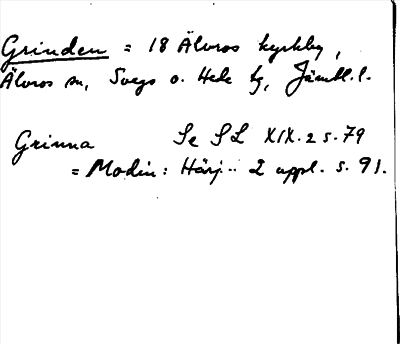 Grinden = 18 Älvros kyrkby,
Älvros sn, Svegs o. Hede tg, Jämtl. l.
Grinna Se SL XIX.2 s.79
= Modin: Härj... 2 uppl. s. 91.